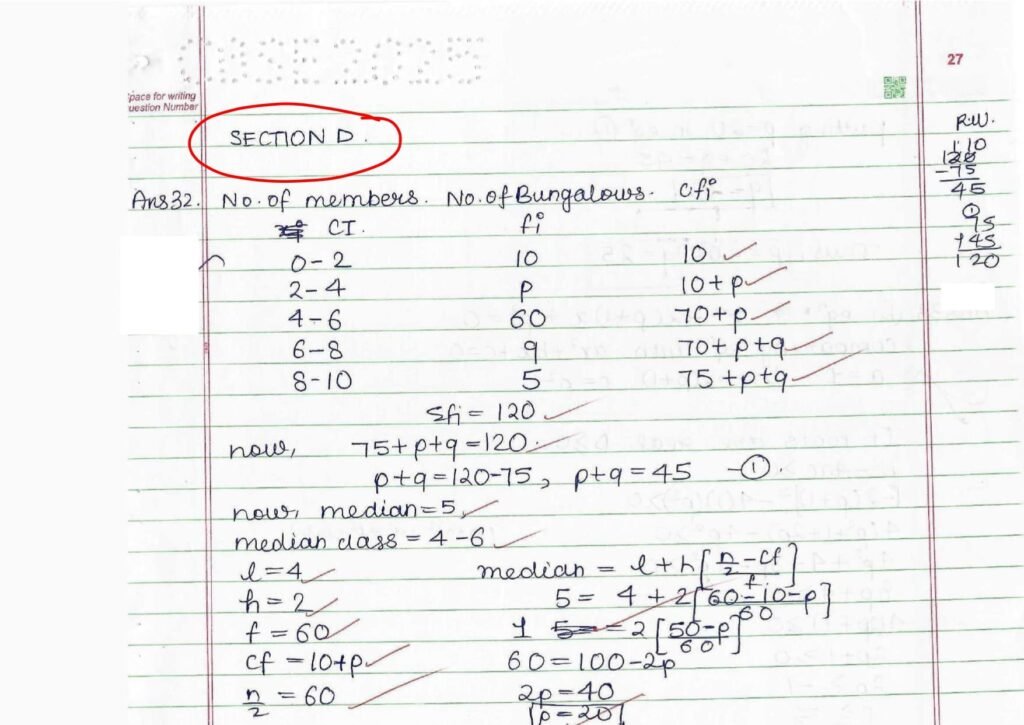 CBSE 2025
27
Space for writing
Question Number
SECTION D.
R.W.
110
120
-75
45
75
+45
120
Ans32. No. of members. No. of Bungalows. Cfi
CI. fi
0-2 10 10
2-4 p 10+p
4-6 60 70+p
6-8 q 70+p+q
8-10 5 75+p+q
Sfi = 120
now, 75+p+q=120.
p+q=120-75, p+q=45 -①.
now, median=5,
median class = 4-6
l=4 median = l+h[n/2-cf/f]
h=2 5= 4+2[60-10-p/60]
f=60 1 5= =2[50-p/60]
cf=10+p 60=100-2p
n/2=60 2p=40
p=20